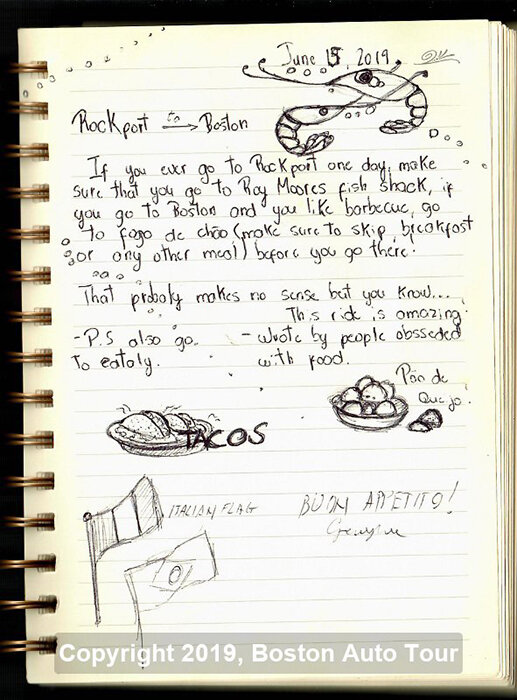 June 15, 2019
Rockport to Boston
If you ever go to Rockport one day, make
sure that you go to Roy Moores fish shack, if
you go to Boston and you like barbecue, go
to fogo de chão (make sure to skip breakfast
or any other meal) before you go there.
That probaly makes no sense but you know...
This ride is amazing.
-P.S also go
To eataly.
- wrote by people obsseded
with food.
Pão de
Quejo.
TACOS
ITALIAN FLAG
BUON APPETITO!
Copyright 2019, Boston Auto Tour